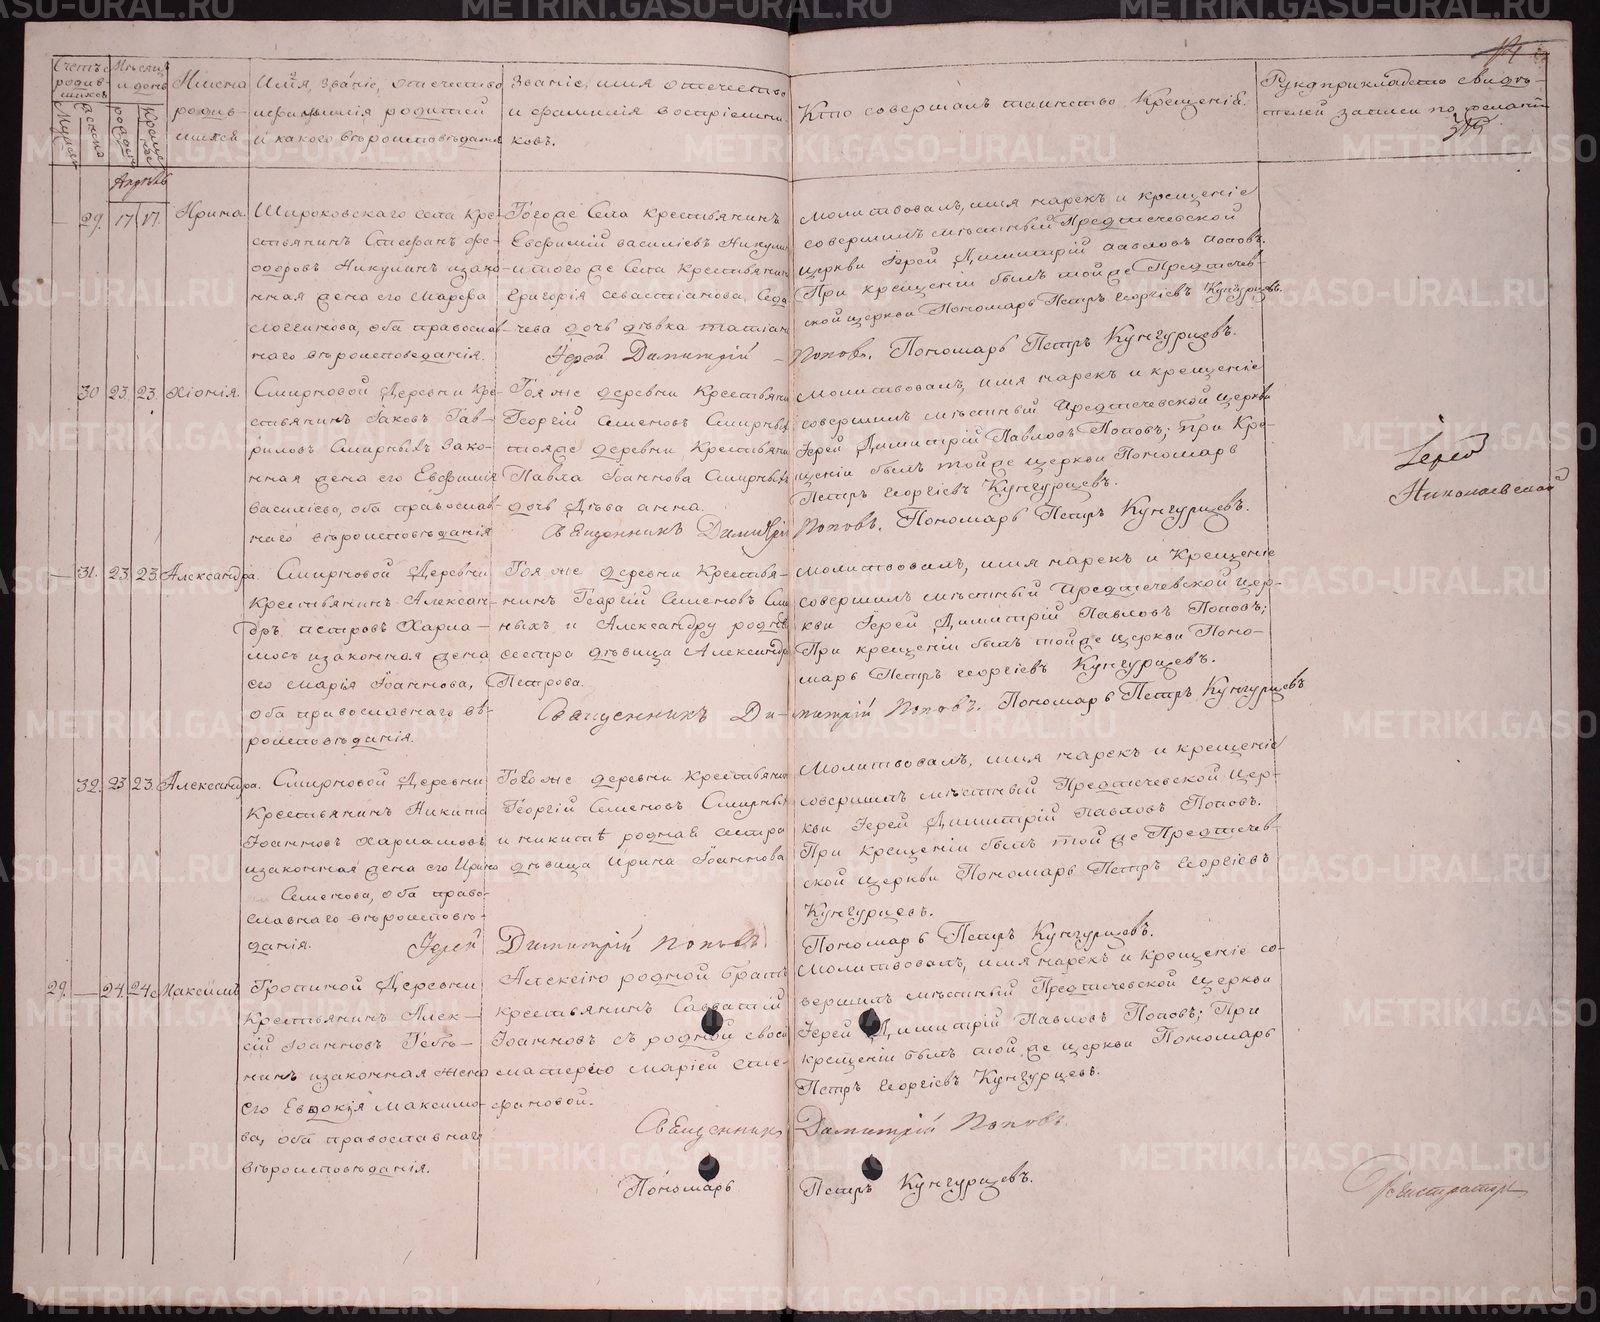 Счетъ родив-
шихся
Мужеска
Женска
Мѣсяцъ
и день
рожденія
Крещенія
Имена
родив-
шихся
Имя, званіе, отечество
и фамилія родителей
и какого вѣроисповѣданія
Званіе, имя отечество
и фамилія воспріемни-
ковъ.
Кто совершалъ таинство Крещенія.
Рукоприкладство свидѣ-
телей записи по желанію
Апрѣль
29. 17 17. Ирина.
Широковскаго села Кре-
стьянинъ Стефанъ Фе-
одоровъ Никулинъ изако-
нная жена его Марфа
Логгинова, оба православ-
наго вѣроисповеданія.
Тогоже Села крестьянинъ
Евфимій василіевъ Никули
и тогоже Села Крестьянин
Григорія севастіанова
чева дочь дѣвка татіан
Іерей Димитрій
молитвовалъ, имя нарекъ и крещеніе
совершилъ мѣстный Предтечевской
церкви Іерей Димитрій павловъ поповъ.
При крещеніи былъ тойже Предтечев-
ской церкви Пономарь Петръ Георгіевъ Кунгурцевъ.
Поповъ. Пономарь Петръ Кунгурцевъ.
30 23. 23. Хіонія.
Смирновой Деревни Кре-
стьянинъ Іаковъ Гав-
риловъ Смирныхъ Зако-
нная жена его Евфимія
василіева, оба православ-
наго вѣроисповѣданія
Тояже деревни Крестьяни
Георгій Семеновъ Смирных
тояже деревни Крестьяни
Павла Іоаннова Смирных
дочь Дѣва анна.
Священникъ Димитрій
молитвовалъ, имя нарекъ и крещеніе
совершилъ мѣстный Предтечевской церкви
Іерей Димитрій Павловъ Поповъ; При Кре-
щеніи былъ тойже церкви Пономарь
Петръ Георгіевъ Кунгурцевъ.
Поповъ. Пономарь Петръ Кунгурцевъ.
Іерей
Николаевской
31. 23. 23. Александра.
Смирновой Деревни
Крестьянинъ Алексан-
дръ петровъ Харла-
мовъ изаконная жена
его Марія Іоаннова,
оба православнаго вѣ-
роисповѣданія.
Тояже деревни Крестья-
нинъ Георгій Семеновъ Смир
ныхъ и Александру родная
сестра дѣвица Александра
Петрова.
Священникъ Ди-
молитвовалъ, имя нарекъ и Крещеніе
совершилъ мѣстный Предтечевской цер-
кви Іерей Димитрій Павловъ Поповъ;
При крещеніи былъ тойже церкви Поно-
марь Петръ Георгіевъ Кунгурцевъ.
митрій Поповъ. Пономарь Петръ Кунгурцевъ
32. 23 23. Александра.
Смирновой Деревни
Крестьянинъ Никита
Іоанновъ Харламовъ
изаконная жена его Ирина
Семенова, оба право-
славнаго вѣроисповѣ-
данія.
Тогоже деревни Крестьянин
Георгій Семеновъ Смирных
и никитѣ родная сестра
дѣвица Ирина Іоаннова
Іерей Димитрій Поповъ
Молитвовалъ, имя нарекъ и крещеніе
совершилъ мѣстный Предтечевской цер-
кви Іерей Димитрій Павловъ Поповъ.
При крещеніи былъ тойже Предтечев-
ской церкви Пономарь Петръ Георгіевъ
Кунгурцевъ.
Пономарь Петръ Кунгурцевъ.
29. — 24. 24. Максимъ
Гропиной Деревни
Крестьянинъ Алек-
сій Іоанновъ
нинъ изаконная жена
его Евдокія Максимо-
ва, оба православнаго
вѣроисповѣданія.
Алексію родной братъ
крестьянинъ Савватій
Іоанновъ съ родной своей
матерью Маріей Сте-
фановой.
Священникъ
Пономарь
Молитвовалъ, имя нарекъ и Крещеніе со-
вершилъ мѣстный Предтечевской церкви
Іерей Димитрій Павловъ Поповъ; При
крещеніи былъ тойже церкви Пономарь
Петръ Георгіевъ Кунгурцевъ.
Димитрій Поповъ.
Петръ Кунгурцевъ.
Регистраторъ
METRIKI.GASO-URAL.RU